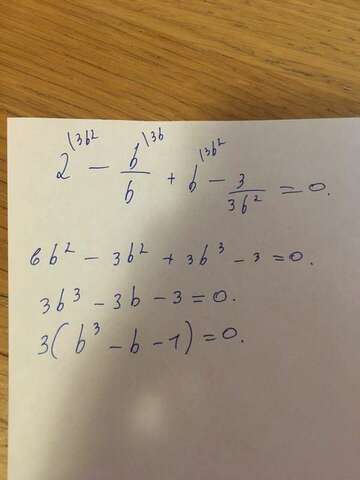 2^{\3b²} − b^{\3b}/b + b^{\3b²} − 3/3b² = 0.
6b² − 3b² + 3b³ − 3 = 0.
3b³ − 3b − 3 = 0.
3(b³ − b − 1) = 0.